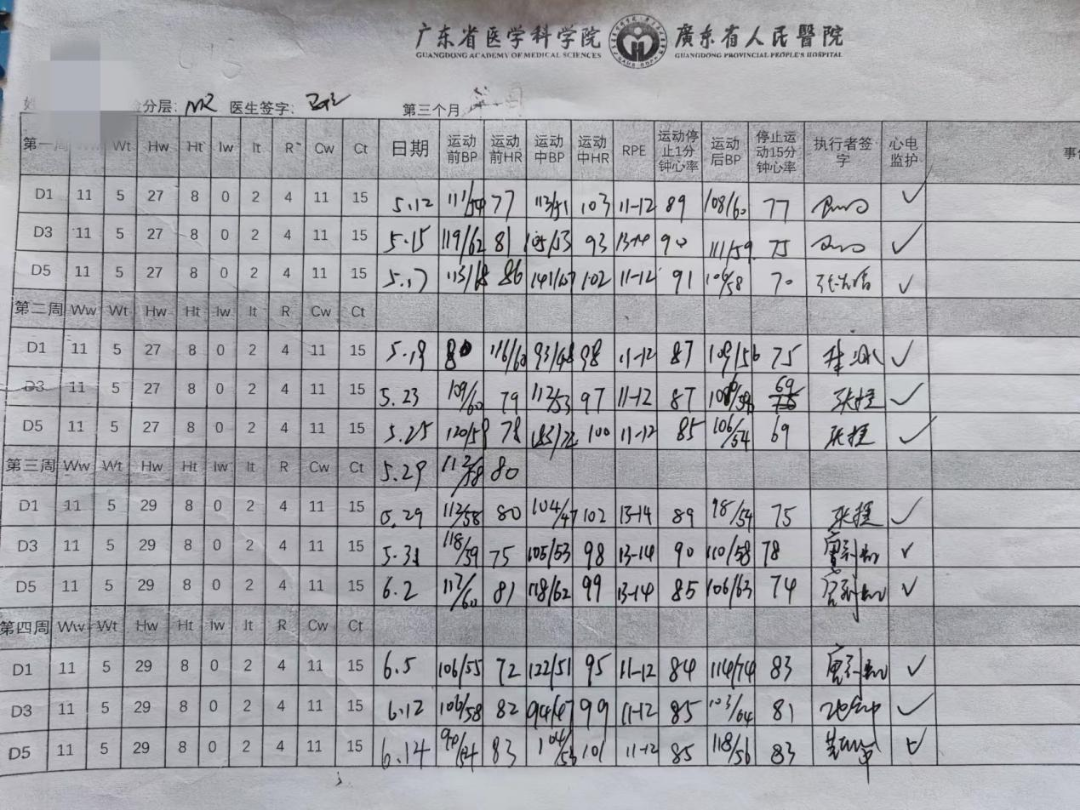 广东省医学科学院 廣東省人民醫院
GUANGDONG ACADEMY OF MEDICAL SCIENCES GUANGDONG PROVINCIAL PEOPLE'S HOSPITAL
分层: 医生签字: 第三个月
第一周 Wt Hw Ht Iw It R Cw Ct 日期 运动前BP 运动前HR 运动中BP 运动中HR RPE 运动停止1分钟心率 运动后BP 停止运动15分钟心率 执行者签字 心电监护
D1 11 5 27 8 0 2 4 11 15 5.12 77 103 11-12 89 108/60 77 ✓
D3 11 5 27 8 0 2 4 11 15 5.15 119/62 81 93 13-14 90 111/59 75 ✓
D5 11 5 27 8 0 2 4 11 15 5.17 86 102 11-12 91 70 ✓
第二周 Ww Wt Hw Ht Iw It R Cw Ct
D1 11 5 27 8 0 2 4 11 15 5.19 116/60 93/48 98 11-12 87 109/56 75 ✓
D3 11 5 27 8 0 2 4 11 15 5.23 109/60 79 112/53 97 11-12 87 69 张挺 ✓
D5 11 5 27 8 0 2 4 11 15 5.25 120/59 78 100 11-12 85 106/54 69 张挺 ✓
第三周 Ww Wt Hw Ht Iw It R Cw Ct 5.29 112/58 80
D1 11 5 29 8 0 2 4 11 15 5.29 112/58 80 104/47 102 13-14 89 98/54 75 张挺 ✓
D3 11 5 29 8 0 2 4 11 15 5.31 118/59 75 105/53 98 13-14 90 110/58 78 ✓
D5 11 5 29 8 0 2 4 11 15 6.2 117/60 81 118/62 99 13-14 85 106/63 74 ✓
第四周 Ww Wt Hw Ht Iw It R Cw Ct
D1 11 5 29 8 0 2 4 11 15 6.5 106/55 72 122/51 95 11-12 84 114/74 83 ✓
D3 11 5 29 8 0 2 4 11 15 6.12 106/58 82 94/47 99 11-12 85 103/64 81 ✓
D5 11 5 29 8 0 2 4 11 15 6.14 90/54 83 104/53 101 11-12 85 118/56 83 ✓